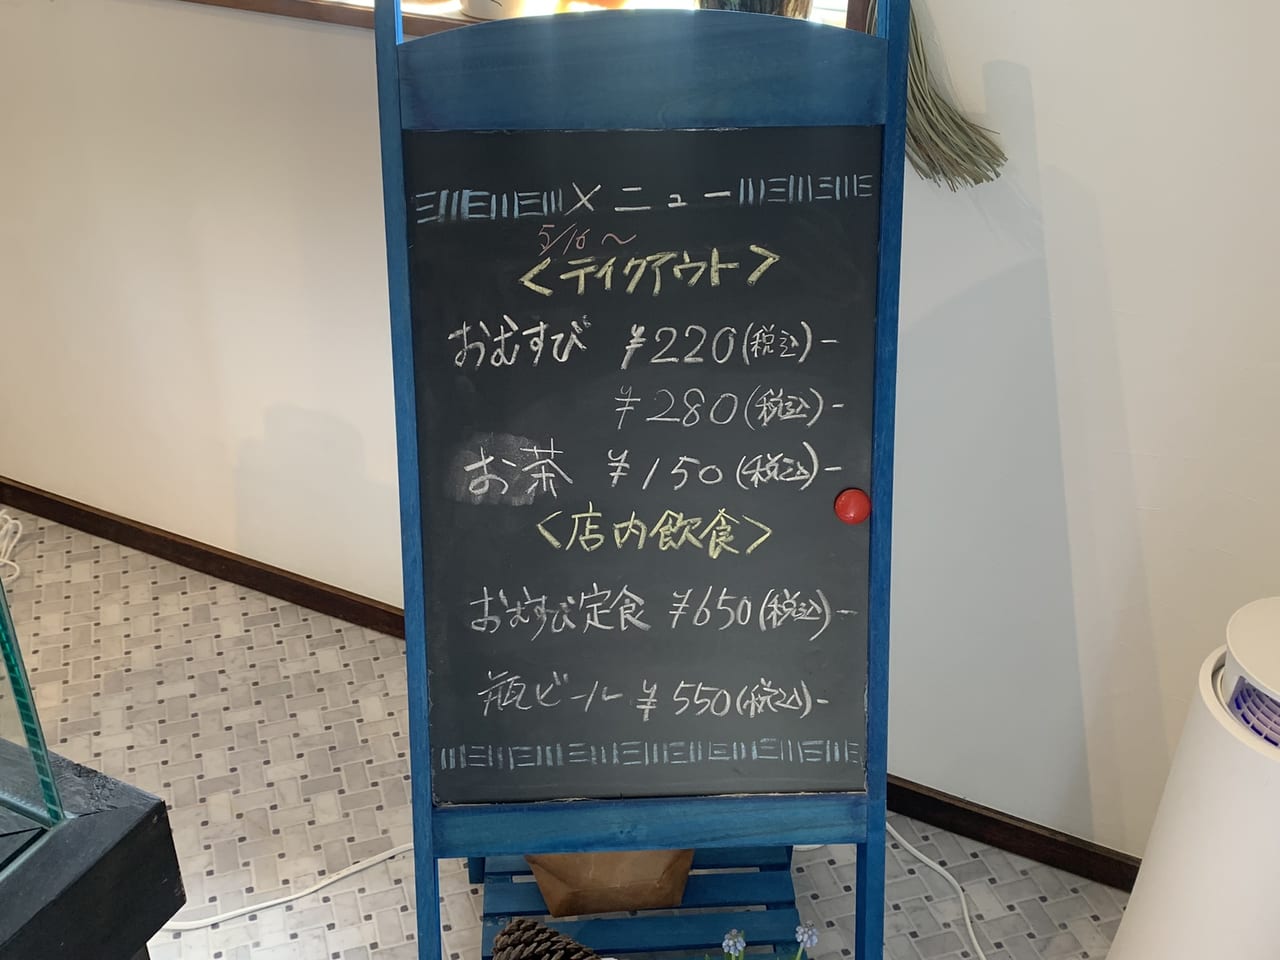 メニュー
5/16～
<テイクアウト>
おむすび ¥220(税込)-
¥280(税込)-
お茶 ¥150(税込)-
<店内飲食>
おむすび定食 ¥650(税込)-
瓶ビール ¥550(税込)-